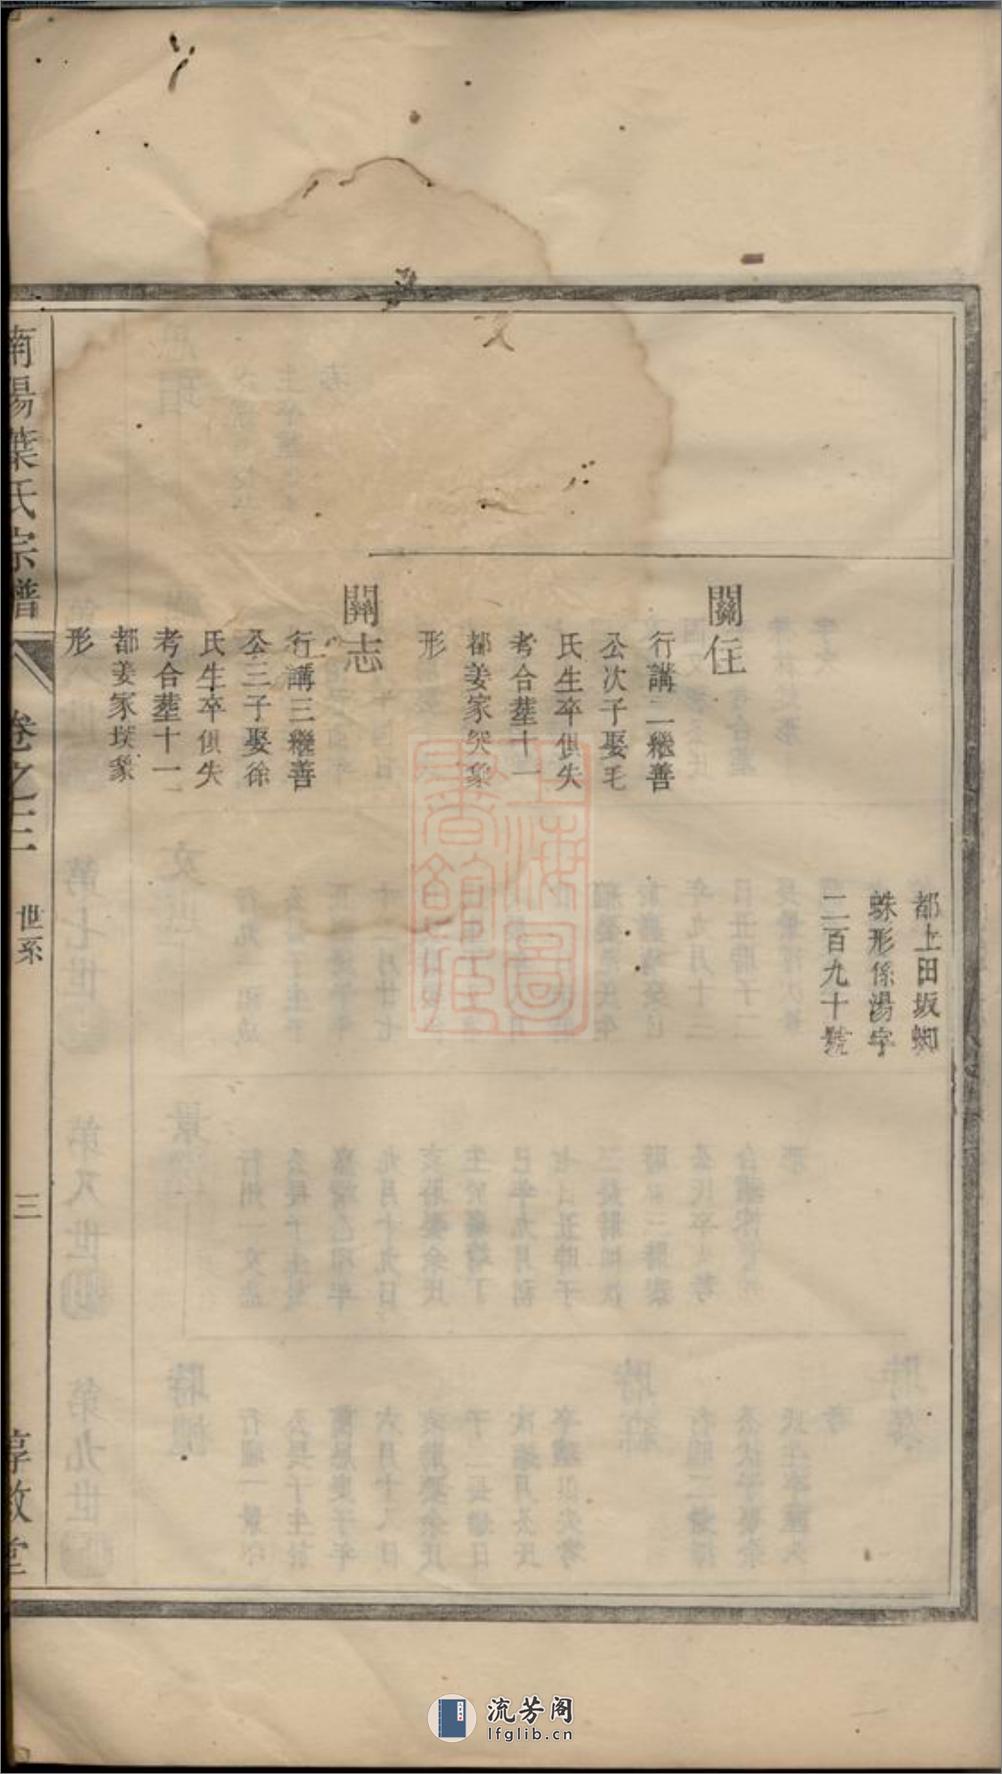 都上田坂蜘
蛛形係湯字
二百九十號
關任
行講二繼善
公次子娶毛
氏生卒俱失
考合塟十一
都姜家突象
形
開志
行講三繼善
公三子娶徐
氏生卒俱失
考合塟十一
都姜家塽象
形
南陽葉氏宗譜
卷之三
世系
三
惇敘堂
上海圖書館藏
流芳阁
lfglib.cn